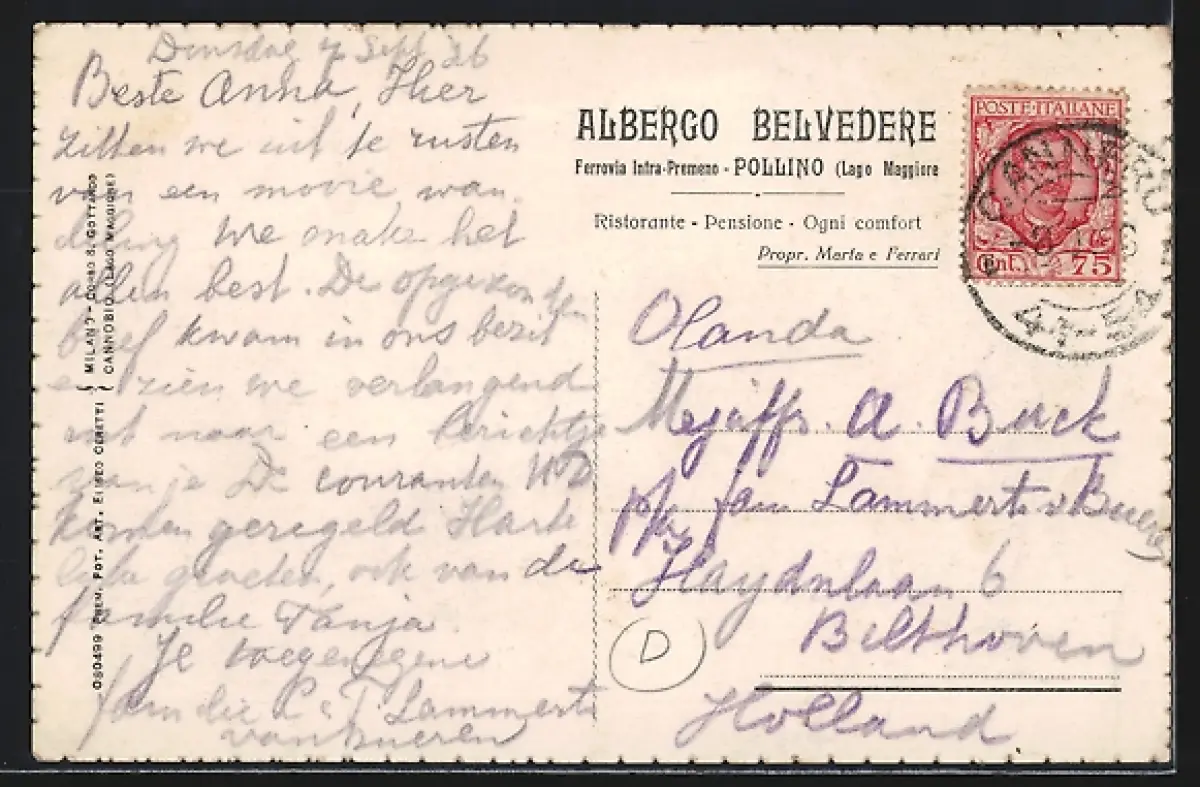 Dinsdag 7 Sept '26
Beste Anna, Hier
zitten we uit te rusten
van een mooie wan
deling We maken het
allen best. De opgezonden
brief kwam in ons bezit
en zien we verlangend
uit naar een berichtje
van je De couranten
komen geregeld Harte
lijke groeten, ook van de
familie Tanja.
Je toegenegene
familie L. v T. Lammerts
van Bueren
ALBERGO BELVEDERE
Ferrovia Intra-Premeno - POLLINO (Lago Maggiore
Ristorante - Pensione - Ogni comfort
Propr. Marta e Ferrari
POSTE·ITALIANE
Cent. 75
41-54
Olanda
Mejuffr. A. Buck
p/a fam Lammerts v Bueren
Haydnlaan 6
Bilthoven
Holland
D
080499 PREM. FOT. ART. ELISEO CERETTI { MILANO - CORSO S. GOTTARDO
CANNOBIO (LAGO MAGGIORE)